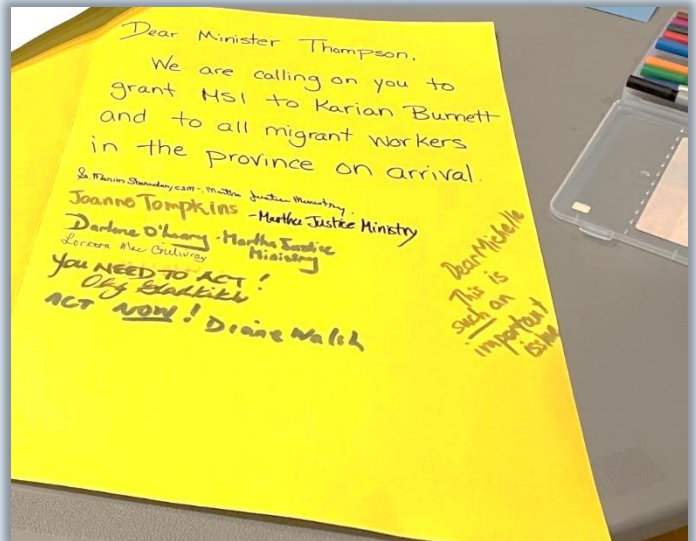 Dear Minister Thompson,
We are calling on you to
grant MSI to Karian Burnett
and to all migrant workers
in the province on arrival.
Sr. Marion Sheridan, csm - Martha Justice Ministry.
Joanne Tompkins - Martha Justice Ministry
Darlene O'Leary - Martha Justice
Ministry
Loreena Mac Gillivray
YOU NEED TO ACT!
Oleg
ACT NOW! Diane Walsh
Dear Michelle
This is
such an
important
issue